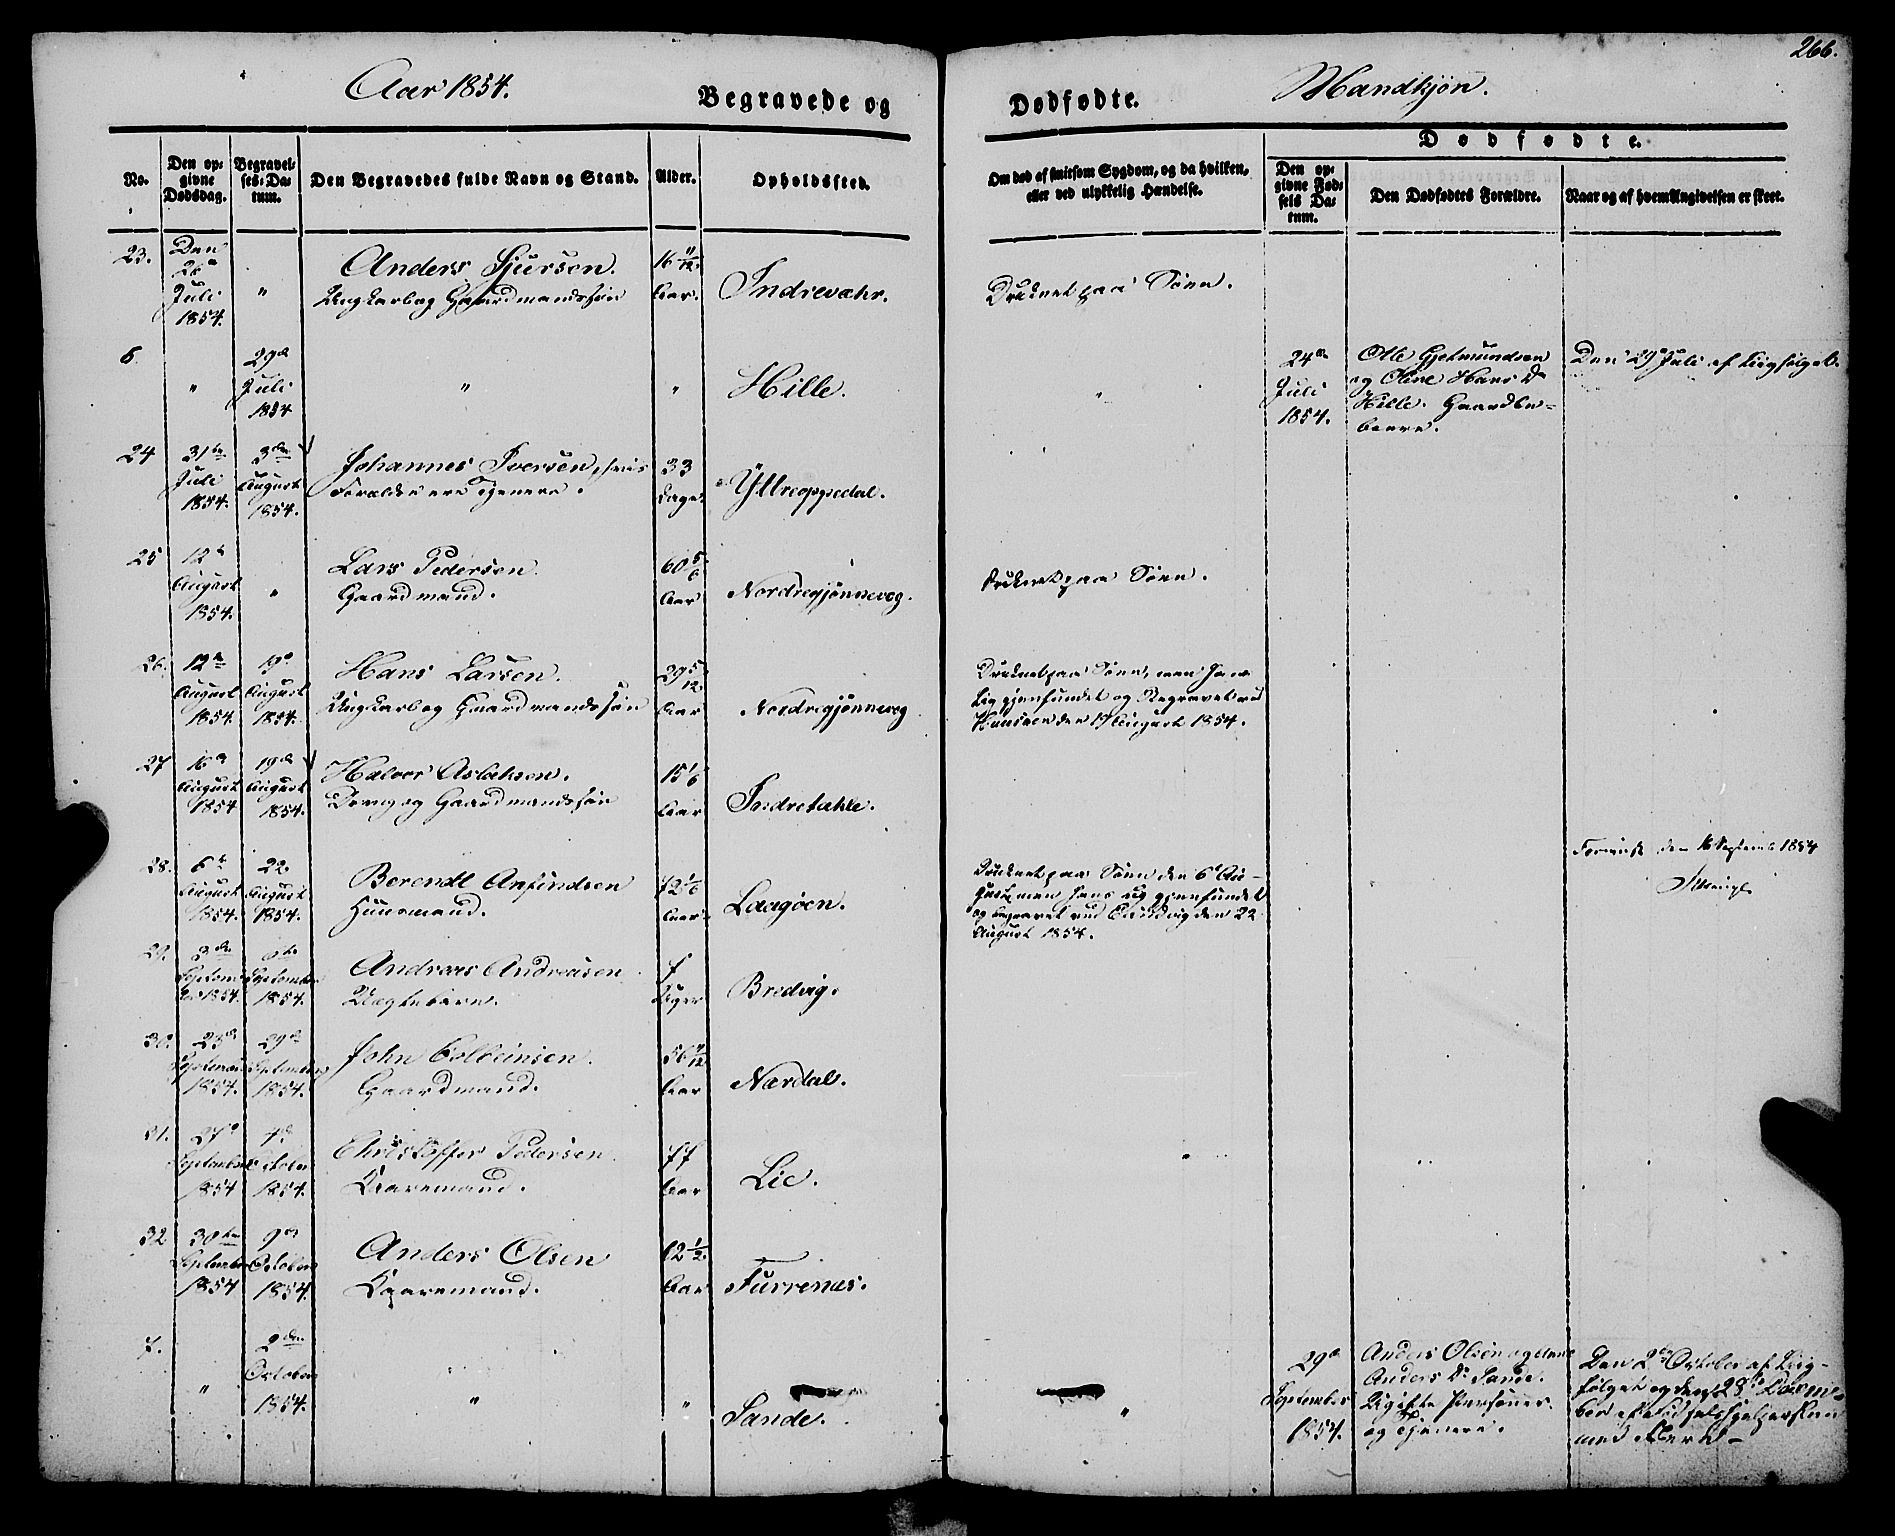 266.
Aar 1854.
Begravede og
Dødfødte.
Mandkjøn.
No.
Den op-
givne
Dødsdag.
Begravel-
ses-Da-
tum.
Den Begravedes fulde Navn og Stand.
Alder.
Opholdssted.
Om død af smitsom Sygdom, og da hvilken,
eller ved ulykkelig Hændelse.
Dødfødte.
Den op-
givne Fød-
sels Da-
tum.
Den Dødfødtes Forældre.
Naar og af hvem Angivelsen er skeet.
23.
Den
26
Juli
1854.
"
Anders Sjursen.
Ungkarl og Gaardmandssøn
16 11/12
Aar.
Indrevæhr.
Druknet paa Søen.
6.
"
29de
Juli
1854
"
"
Hille.
"
24de
Juli
1854.
Ole Gjetmundsen
og Oline Hans D.
Hille. Gaardbe-
boere.
Den 29 Juli af Liigfølget.
24
31te
Juli
1854.
3die
August
1854.
Johannes Iversen, hvis
Forældre ere Tjenere.
33
Dage.
Yttreoppedal.
25
12
August
1854.
"
Lars Pedersen
Gaardmand.
60 5/6
Aar
Nordregjønnevog.
Druknet paa Søen.
26.
12te
August
1854.
19
August
1854.
Hans Larsen.
Ungkarl og Gaardmandssøn
29 5/12
Aar
Nordregjønnevog
Druknet paa Søen, men hans
Liig gjenfundet og Begravet ved
den 19 August 1854.
27
16
August
1854
19de
August
1854.
Halvor Aslaksen.
Dreng og Gaardmandssøn
15 1/6
Aar
Indretakle.
28.
6te
August
1854.
22
August
1854.
Berendt Anfindsen
Huusmand.
72 1/6
Aar.
Laagøen.
Druknet paa Søen den 6te Au-
gust, men hans Liig gjenfundet
og begravet ved den 22
August 1854.
den 16 Septemb 1854
29.
3die
Septem-
ber 1854.
6te
September
1854.
Andreas Andreasen
Ægtebarn.
7
Uger
Bredvig.
30.
23de
September
1854.
29de
September
1854.
John Colbeinsen.
Gaardmand.
56 11/12
Aar
Nærdal.
31.
27
September
1854
4de
October
1854.
Christoffer Pedersen
Kaaremand.
77
Aar
Lie.
32
30te
September
1854
9de
October
1854.
Anders Olsen
Kaaremand.
62 1/2
Aar
Furrenæs.
7.
"
2den
October
1854.
"
"
Sande.
"
29de
September
1854.
Anders Olsen og
Anders D. Sande.
Ugifte Personer
og Tjenere.
Den 2den October af Liig-
følget og den 28de
med Attest